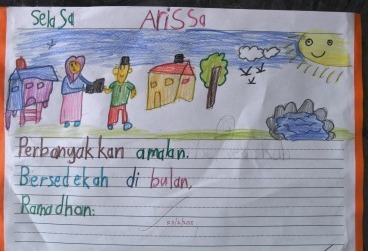 Selasa Arissa
Perbanyakkan amalan.
Bersedekah di bulan,
Ramadhan: